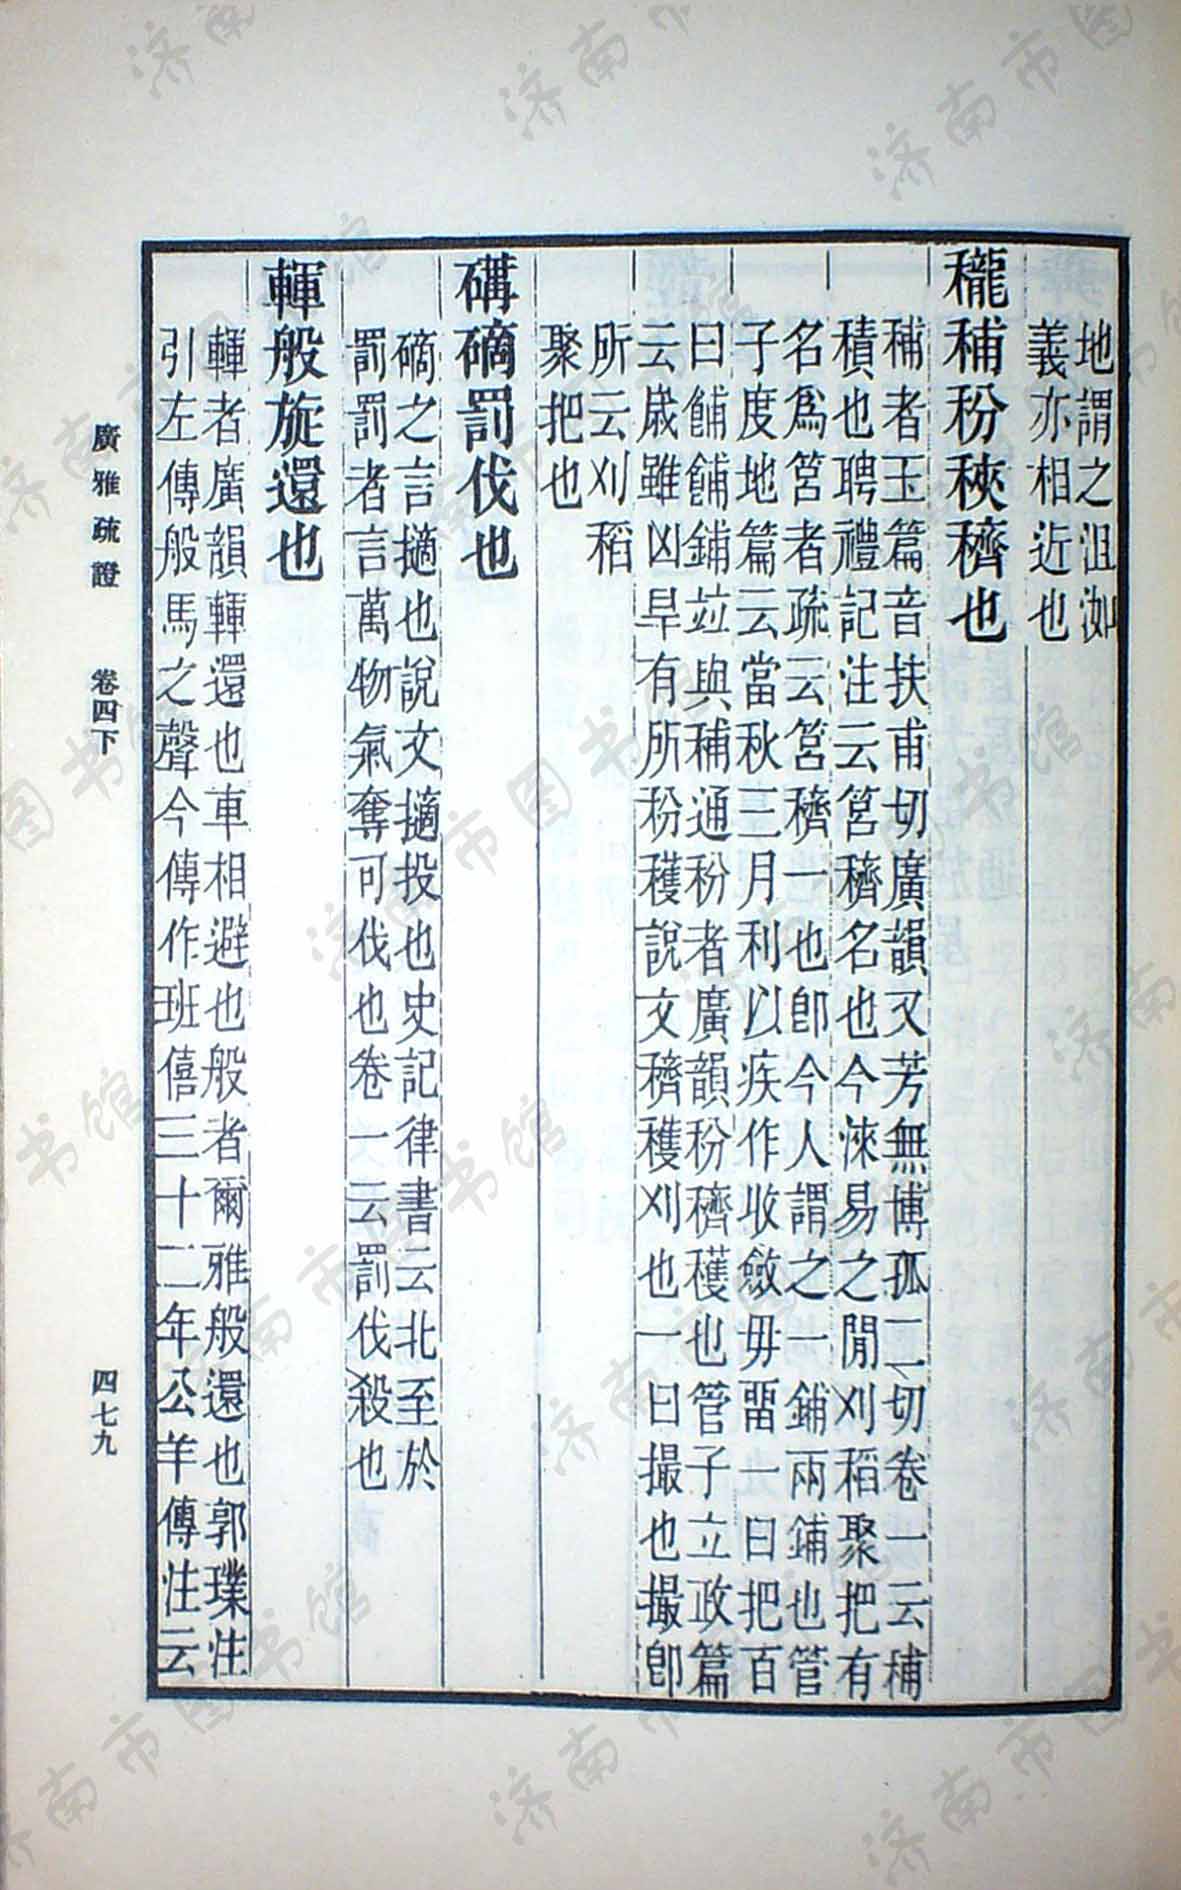 地謂之沮洳
義亦相近也
䆍秿秎䅟穧也
秿者玉篇音扶甫切廣韻又芳無博孤二切卷一云秿
積也聘禮記注云筥穧名也今淶易之閒刈稻聚把有
名爲筥者疏云筥穧一也卽今人謂之一鋪兩鋪也管
子度地篇云當秋三月利以疾作收斂毋畱一曰把百
曰餔餔鋪竝與秿通秎者廣韻秎穧穫也管子立政篇
云歲雖凶旱有所秎穫說文穧穫刈也一曰撮也撮卽
所云刈稻
聚把也
碡碲罰伐也
碲之言擿也說文擿投也史記律書云北至於
罰罰者言萬物氣奪可伐也卷一云罰伐殺也
䡣般旋還也
䡣者廣韻䡣還也車相避也般者爾雅般還也郭璞注
引左傳般馬之聲今傳作班僖三十二年公羊傳注云
廣雅疏證 卷四下 四七九